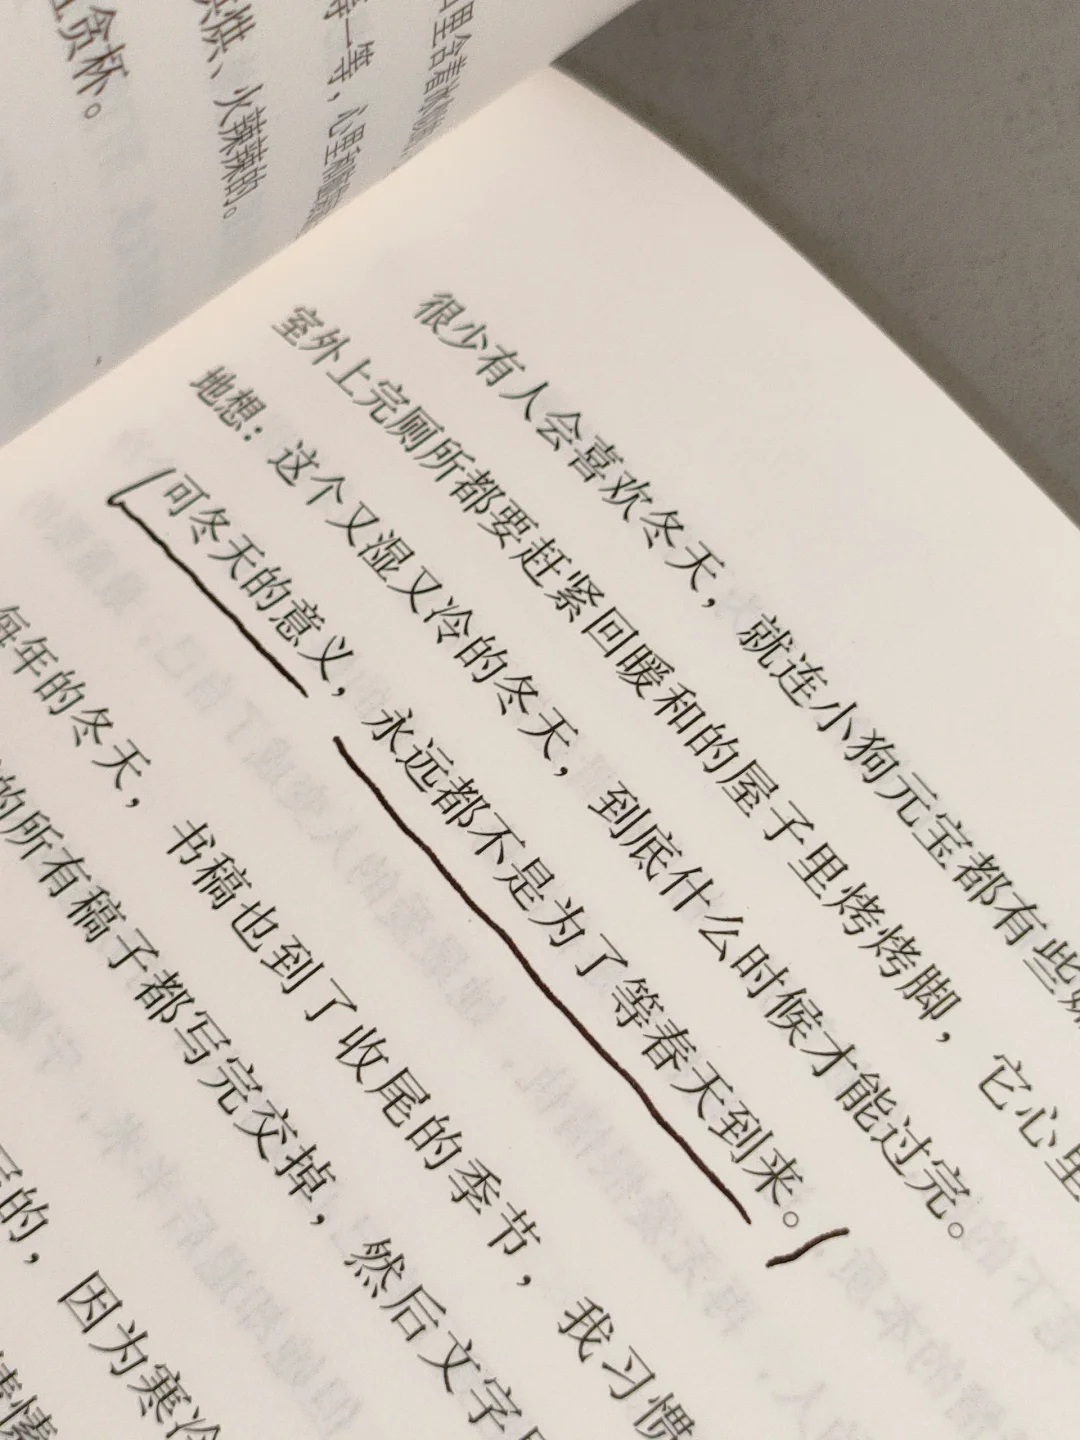 贪杯。
火辣辣的。
等一等，心里
很少有人会喜欢冬天，就连小狗元宝都有些
室外上完厕所都要赶紧回暖和的屋子里烤烤脚，它心里
地想：这个又湿又冷的冬天，到底什么时候才能过完。
可冬天的意义，永远都不是为了等春天到来。
每年的冬天，书稿也到了收尾的季节，我习惯
的所有稿子都写完交掉，然后文字
的，因为寒冷